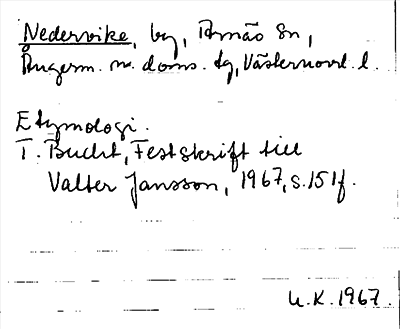 Nedervike, by, Arnäs Sn,
Ångerm. n. doms. tg, Västernorrl. l.
Etymologi.
T. Bucht, Festskrift till
Valter Jansson, 1967, s. 151f.
U.K. 1967.